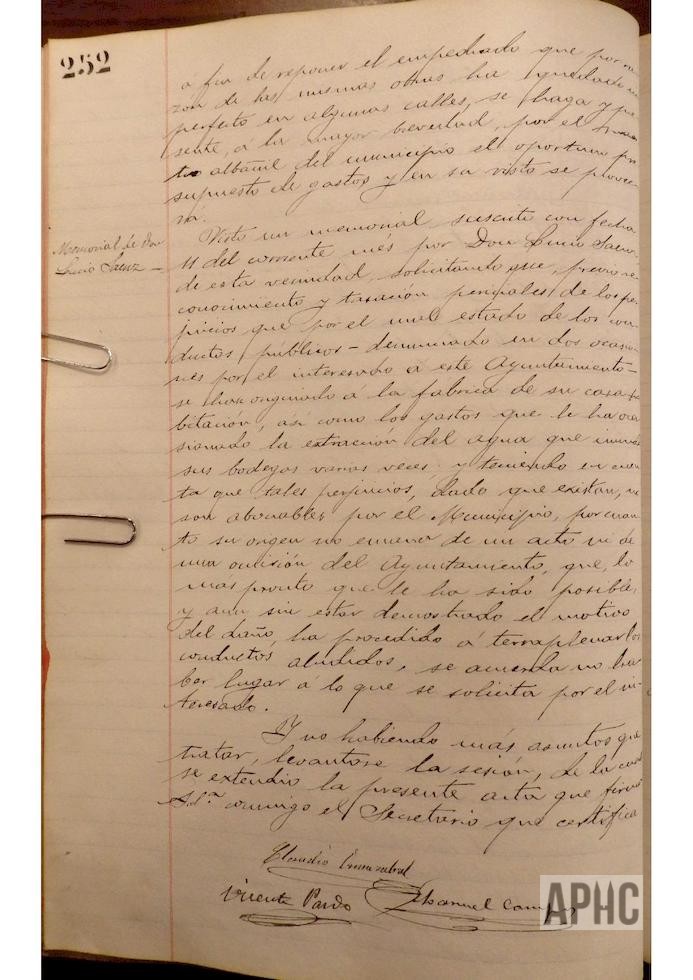 252
a fin de reponer el empedrado que por ra-
zon de las mismas obras ha quedado im-
perfecto en algunas calles, se haga y pre-
sente, á la mayor brevedad, por el
albañil del municipio el oportuno pre
supuesto de gastos y en su vista se provee-
rá.
Memorial de Don
Lucio Saenz –
Visto un memorial suscrito con fecha
11 del corriente mes por Don Lucio Saenz
de esta vecindad, solicitando que, previo re-
conocimiento y tasación periciales de los per-
juicios que por el mal estado de los con-
ductos públicos – denunciado en dos ocasio-
nes por el interesado á este Ayuntamiento –
se han originado á la fabrica de su casa ha
bitación, así como los gastos que le ha oca
sionado la extracción del agua que
sus bodegas varias veces; y teniendo en cuen
ta que tales perjuicios, dado que existan, no
son abonables por el Municipio, por cuan
to su origen no emana de un acto ni de
una omisión del Ayuntamiento, que, lo
mas pronto que le ha sido posible,
y aun sin estar demostrado el motivo
del daño, ha procedido á terraplenar los
conductos aludidos, se acuerda no ha
ber lugar á lo que se solicita por el in-
teresado.
Y no habiendo más asuntos que
tratar, levantose la sesión, de la cual
se extendio la presente acta que firma
S.Sª conmigo el Secretario que certifica
Claudio
Vicente Pardo Manuel
APHC